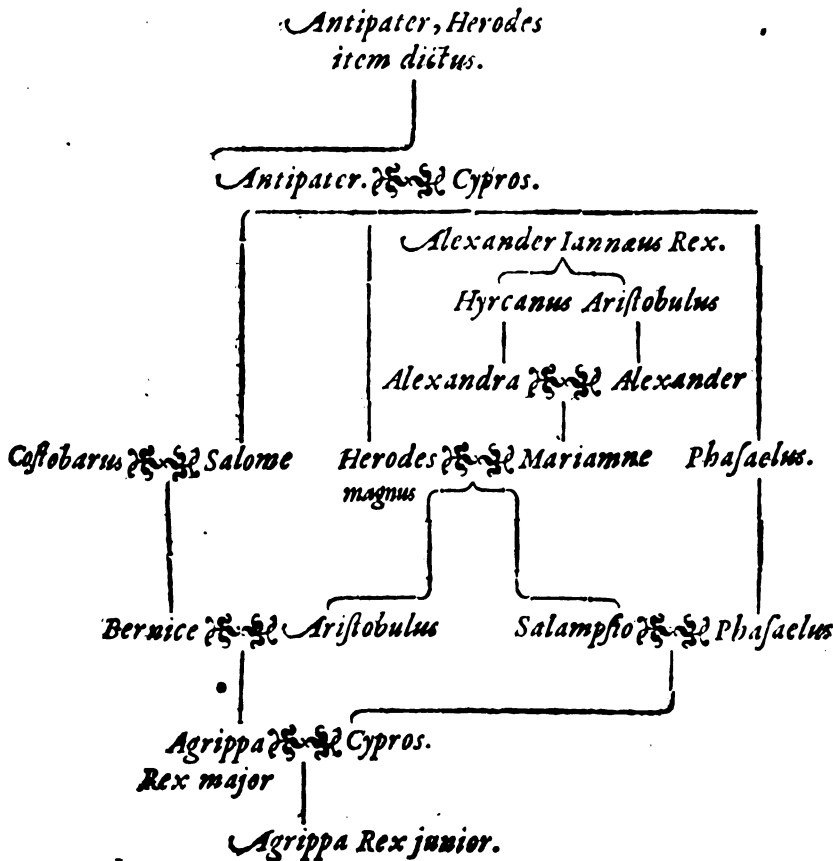 Antipater, Herodes
item dictus.
Antipater. Cypros.
Alexander Iannæus Rex.
Hyrcanus Ariſtobulus
Alexandra Alexander
Coſtobarus Salome Herodes Mariamne Phaſaelus.
magnus
Bernice Ariſtobulus Salampſio Phaſaelus
Agrippa Cypros.
Rex major
Agrippa Rex junior.